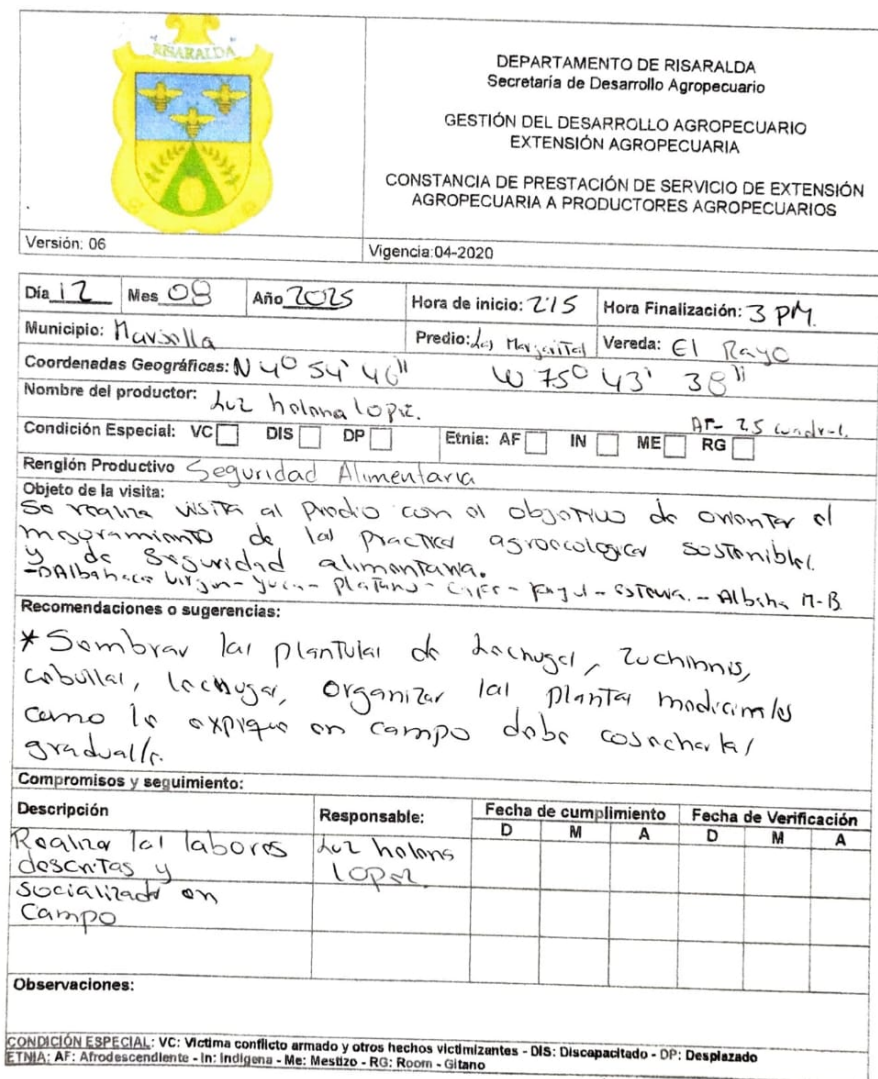 RISARALDA
DEPARTAMENTO DE RISARALDA
Secretaría de Desarrollo Agropecuario
GESTIÓN DEL DESARROLLO AGROPECUARIO
EXTENSIÓN AGROPECUARIA
CONSTANCIA DE PRESTACIÓN DE SERVICIO DE EXTENSIÓN
AGROPECUARIA A PRODUCTORES AGROPECUARIOS
Versión: 06
Vigencia:04-2020
Día 12 Mes 08 Año 2025 Hora de inicio: 2:15 Hora Finalización: 3 PM.
Municipio: Marsella Predio: Las Margaritas Vereda: El Rayo
Coordenadas Geográficas: N 4° 54' 46" W 75° 43' 38"
Nombre del productor: Luz helena lopez.
AT- 2,5 cuadras.
Condición Especial: VC DIS DP Etnia: AF IN ME RG
Renglón Productivo Seguridad Alimentaria
Objeto de la visita:
Se realiza visita al predio con el objetivo de orientar el
mejoramiento de las practicas agroecologicas sostenibles
y de seguridad alimentaria.
Albahaca - yuca - platano - Cafe -
Recomendaciones o sugerencias:
* Sembrar las plantulas de Lechugas, Zuchinnis,
cebollas, lechugas, organizar las plantas medicinales
como le explique en campo debe cosecharlas
Compromisos y seguimiento:
Descripción Responsable: Fecha de cumplimiento Fecha de Verificación
D M A D M A
Realizar las labores Luz helena
descritas y lopez.
socializado en
Campo
Observaciones:
CONDICIÓN ESPECIAL: VC: Victima conflicto armado y otros hechos victimizantes - DIS: Discapacitado - DP: Desplazado
ETNIA: AF: Afrodescendiente - In: Indígena - Me: Mestizo - RG: Room - Gitano